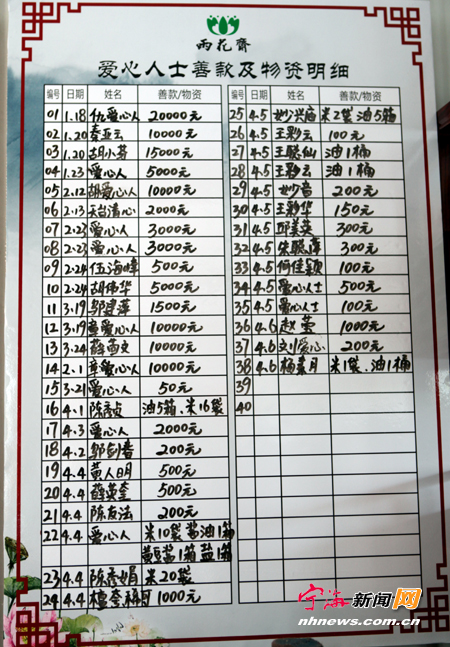 雨花齋
爱心人士善款及物资明细
编号 日期 姓名 善款/物资
01 1.18 仇爱心人 20000元
02 1.20 李亚云 10000元
03 1.20 胡小芬 15000元
04 1.23 爱心人 5000元
05 2.12 胡爱心人 10000元
06 2.13 天台清心 2000元
07 2.23 爱心人 3000元
08 2.23 爱心人 3000元
09 2.24 伍海峰 500元
10 2.24 胡伟华 5000元
11 3.19 邬建萍 1500元
12 3.19 爱心人 10000元
13 3.24 薛 文 10000元
14 2.1 爱心人 10000元
15 3.21 爱心人 50元
16 4.1 陈 贞 油5箱、米16袋
17 4.3 爱心人 2000元
18 4.2 邬剑春 200元
19 4.4 黄人明 500元
20 4.4 薛英奎 500元
21 4.4 陈友法 200元
22 4.4 爱心人 米10袋酱油1箱
黄豆酱1箱盐1箱
23 4.4 陈 娟 米20袋
24 4.4 1000元
编号 日期 姓名 善款/物资
25 4.5 妙兴庙 米2袋油5箱
26 4.5 王彩云 100元
27 4.5 王聪仙 油1桶
28 4.5 王彩云 油1桶
29 4.5 妙音 200元
30 4.5 王彩华 150元
31 4.5 邱美英 300元
32 4.5 朱聪萍 300元
33 4.5 何佳颖 100元
34 4.5 爱心人士 500元
35 4.5 爱心人士 100元
36 4.6 赵莹 1000元
37 4.6 刘爱心 200元
38 4.6 杨素月 米1袋、油1桶
39
40
宁海新闻网
nhnews.com.cn